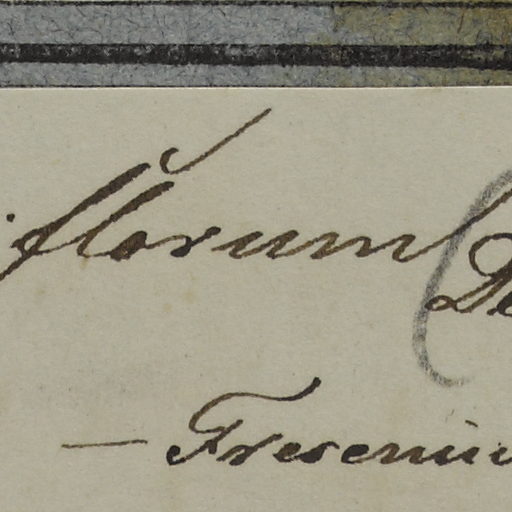 florum (De
— Freseniu